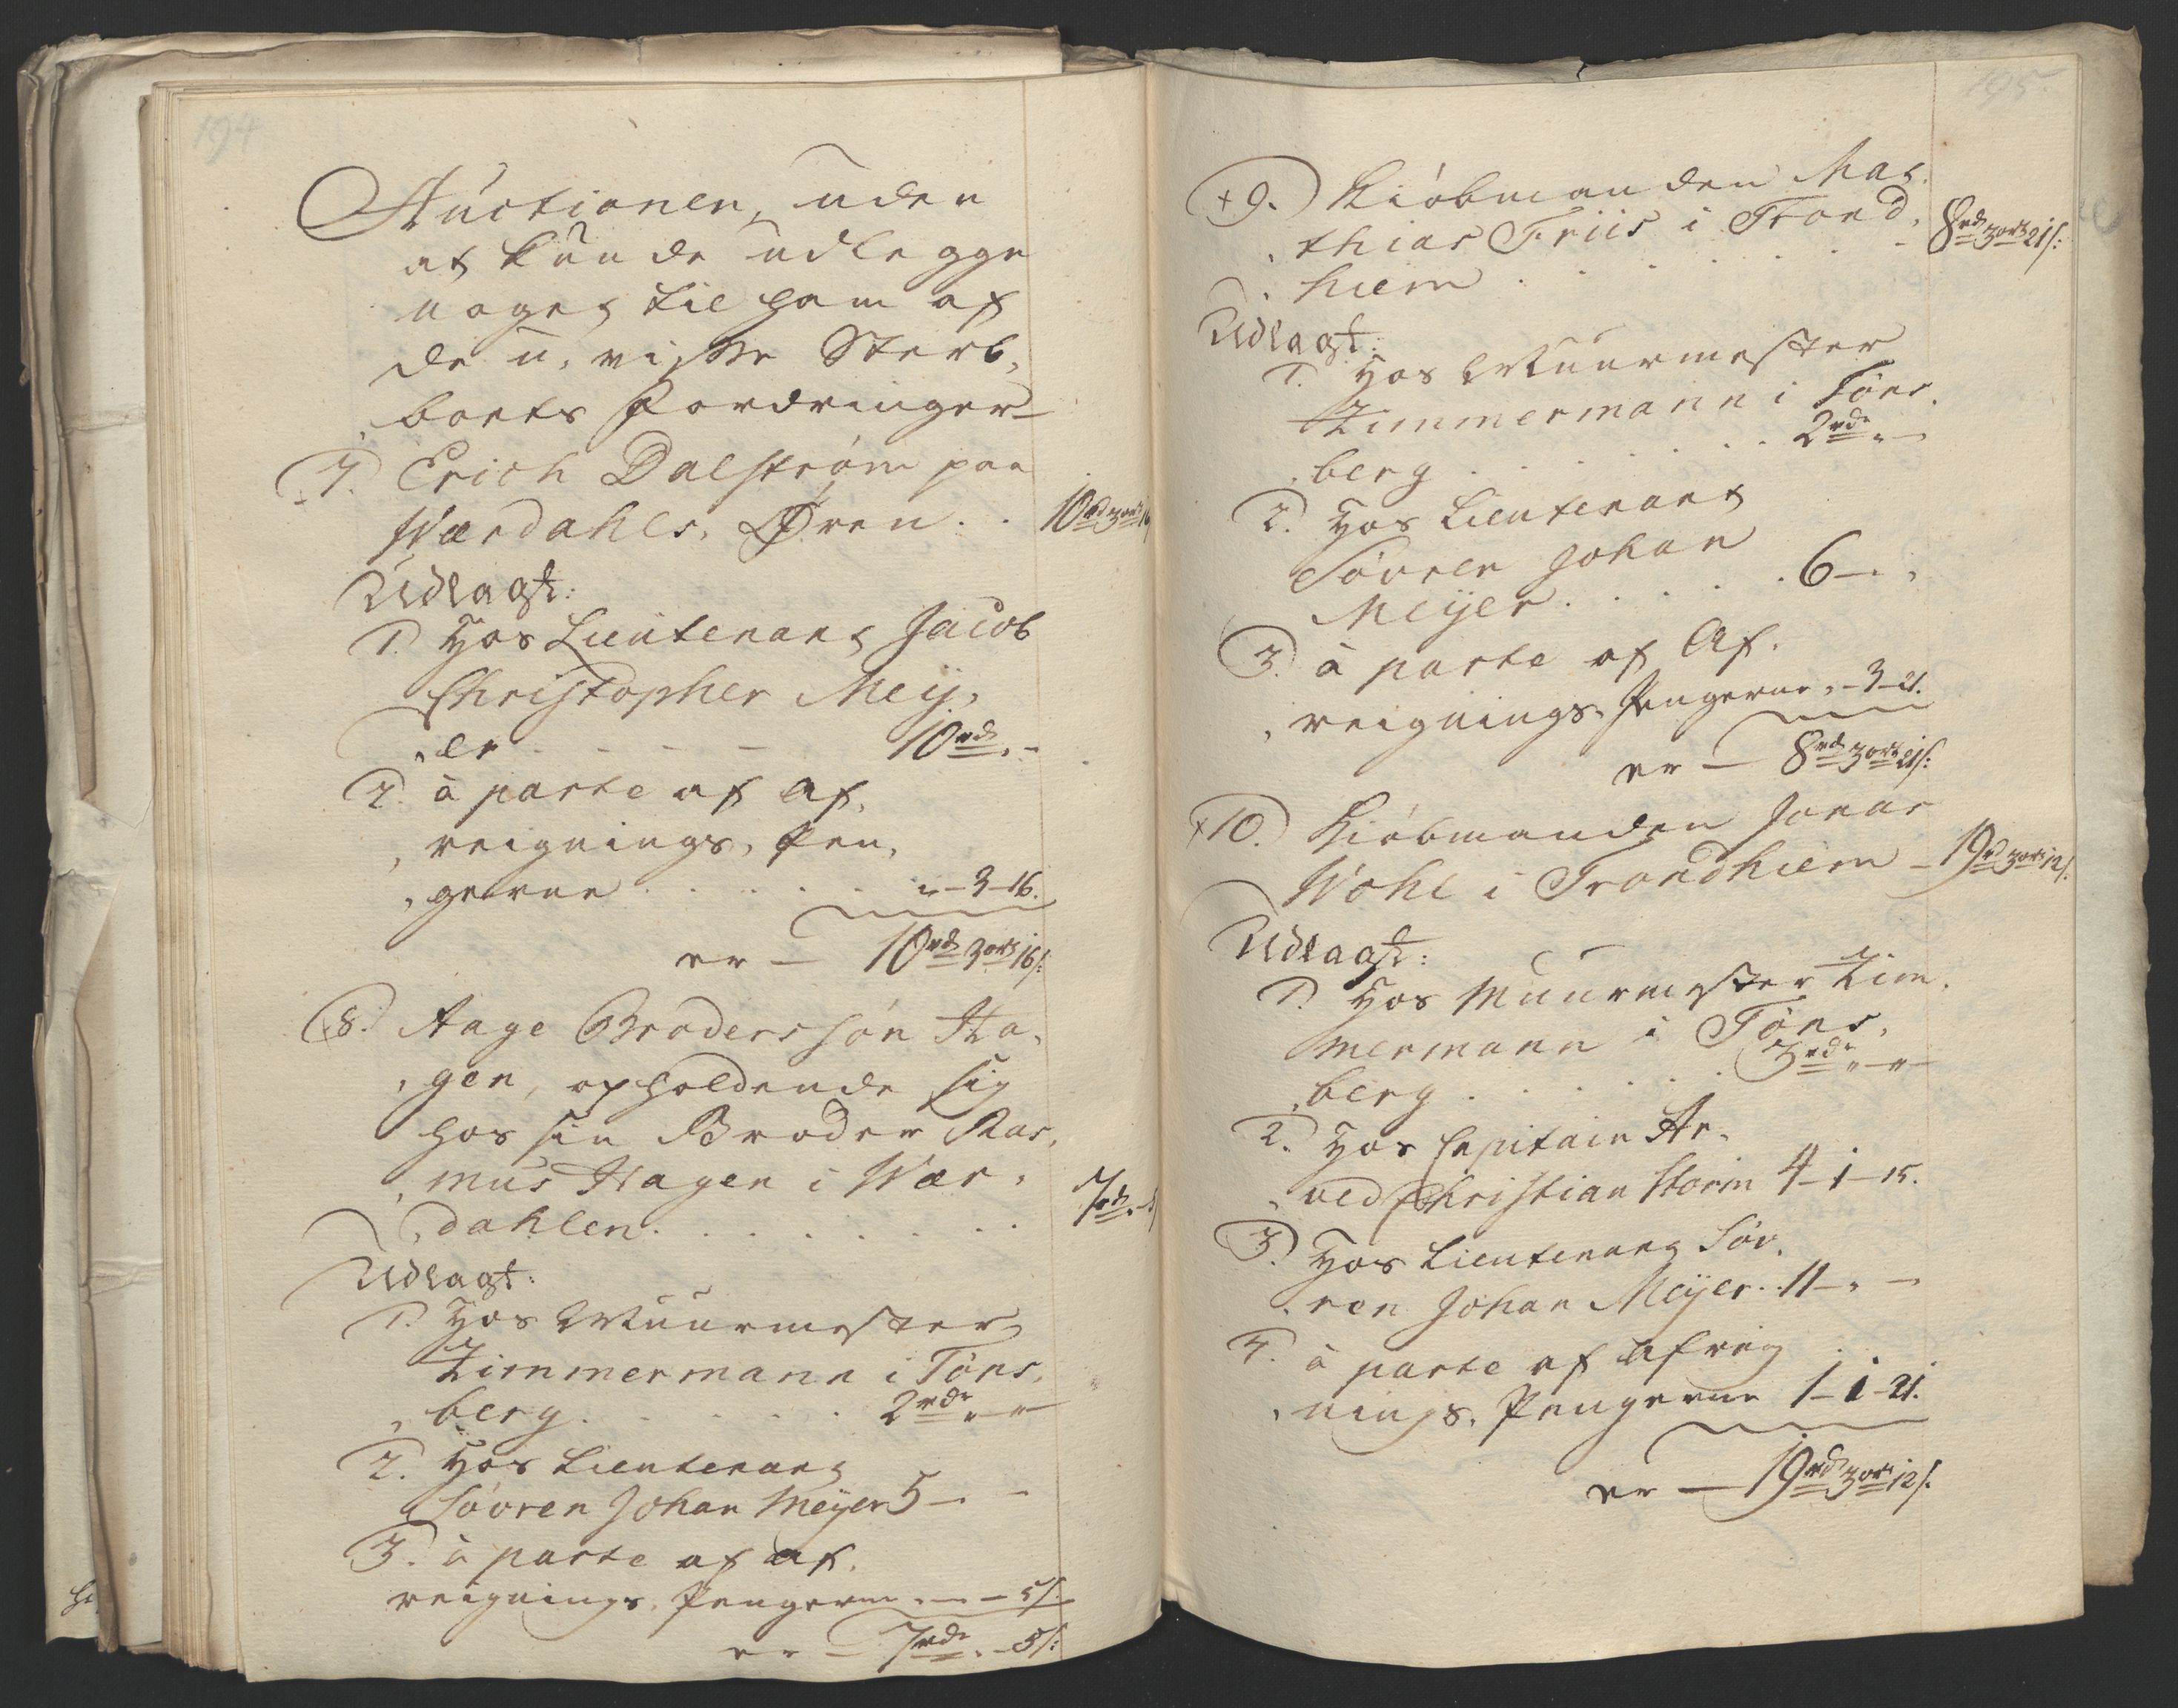 194
Auctionen, uden
at kunde udlegge
noget til ham af
de u-visse Sterb-
boets Fordringer
7. Erich Dalstrøm paa
Værdahls-Øren . . 10rd 3ort 16
Udlagt:
1. Hos Lieutenant Jacob
Christopher Mey-
er - - - - 10rd " -
2. à parte af Af-
reignings-Pen-
gerne . . . . . " - 3 - 16.
er — 10rd 3ort 16s:
+8. Aage Broderssøn Ha-
gen, opholdende sig
hos sin Broder Ras-
mus Hagen i Vær-
dahlen . . . . . . . 7rd " - 5s
Udlagt:
1. Hos Muurmester
Zimmermann i Töns-
berg . . . . . . 2rdr " - " -
2. Hos Lieutenant
Søvren Johan Meyer 5 - " -
3. à parte af Af-
reignings-Pengerne " - " - 5s.
er — 7rdr " - 5s:
195.
+9. Kiøbmanden Mat-
thias Friis i Trond-
hiem . . . . . . . 8rd 3ort 21s:
Udlagt:
1. Hos Muurmester
Zimmermann i Töns-
berg . . . . . . 2rdr " -
2. Hos Lieutenant
Søvren Johan
Meyer . . . . . 6 - " "
3. à parte af Af-
reignings-Pengerne " - 3 - 21.
er — 8rd 3ort 21s:
+10. Kiøbmanden Jonas
Wohl i Trondhiem - 19rd 3ort 12s.
Udlagt:
1. Hos Muurmester Zim-
mermann i Töns-
berg . . . . . . 3rdr " - " -
2. Hos Capitain Ar-
ved Christian Storm 4 - 1 - 15.
3. Hos Lieutenant Søv-
ren Johan Meyer . . 11 - " -
4. à parte af Afreig-
nings-Pengerne 1 - 1 - 21.
er — 19rd 3ort 12s: